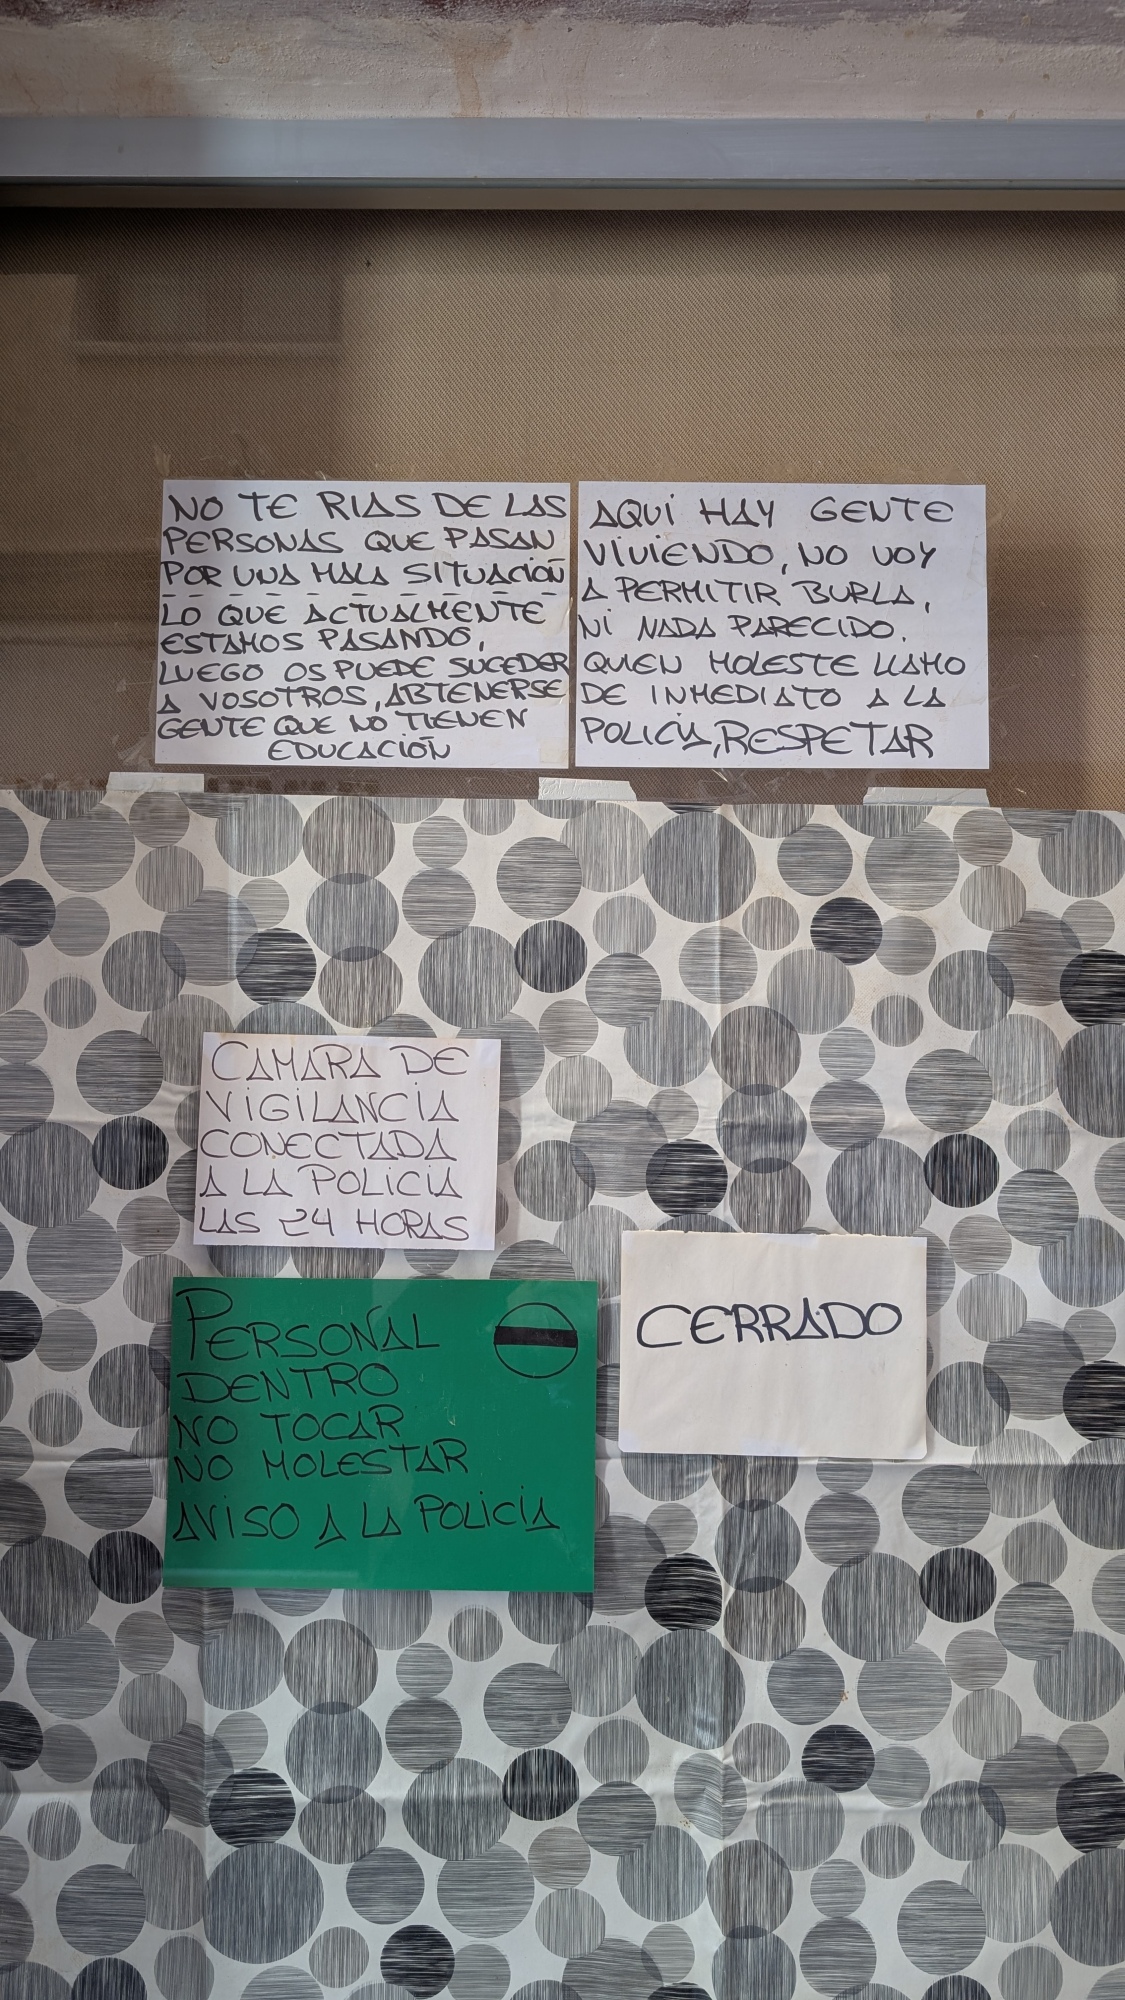 NO TE RIAS DE LAS
PERSONAS QUE PASAN
POR UNA MALA SITUACIÓN
LO QUE ACTUALMENTE
ESTAMOS PASANDO,
LUEGO OS PUEDE SUCEDER
A VOSOTROS, ABTENERSE
GENTE QUE NO TIENEN
EDUCACIÓN
AQUI HAY GENTE
VIVIENDO, NO VOY
A PERMITIR BURLA,
NI NADA PARECIDO.
QUIEN MOLESTE LLAMO
DE INMEDIATO A LA
POLICIA, RESPETAR
CAMARA DE
VIGILANCIA
CONECTADA
A LA POLICIA
LAS 24 HORAS
PERSONAL
DENTRO
NO TOCAR
NO MOLESTAR
AVISO A LA POLICIA
CERRADO